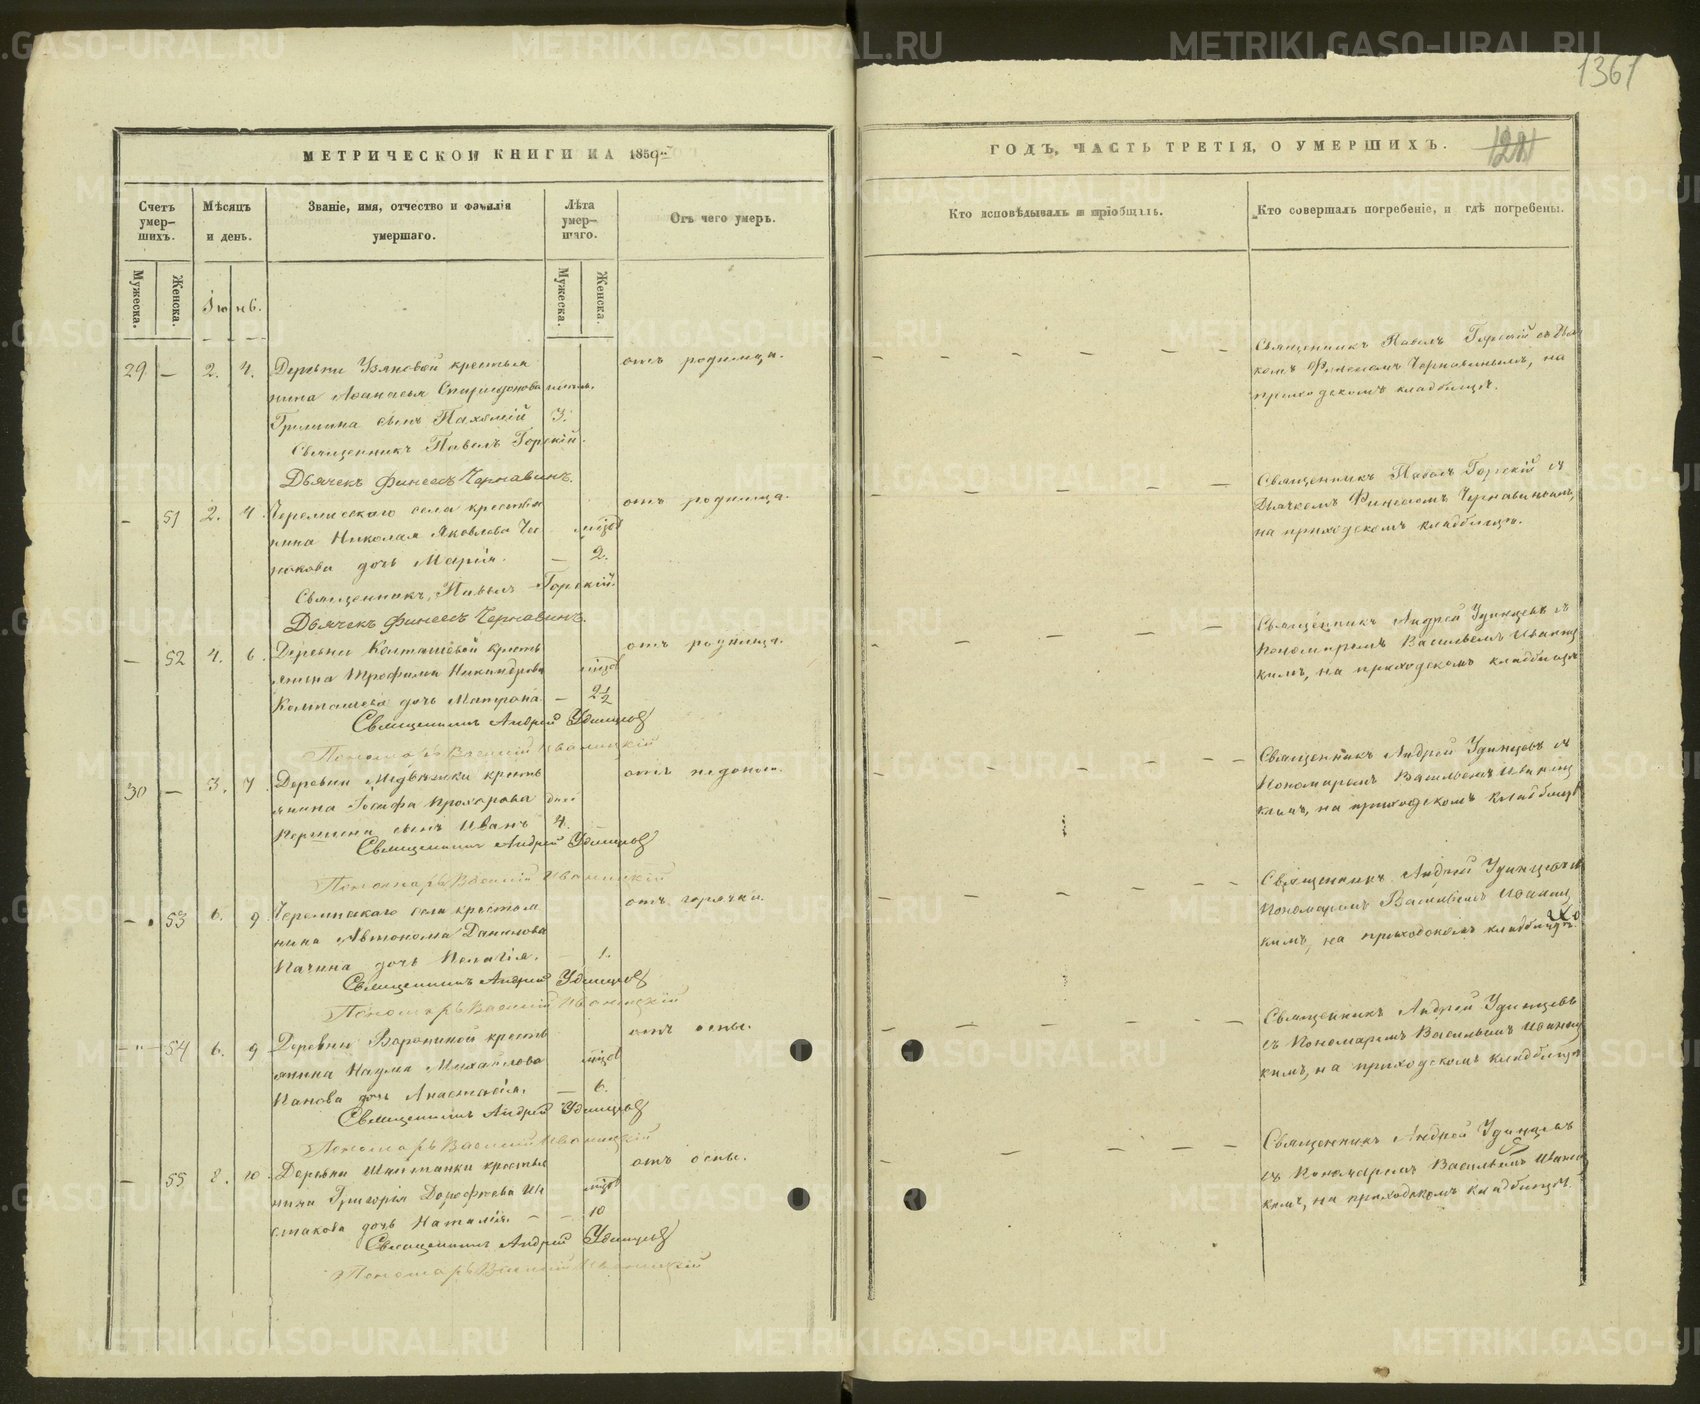 1361
МЕТРИЧЕСКОЙ КНИГИ НА 1859
ГОДЪ, ЧАСТЬ ТРЕТІЯ, О УМЕРШИХЪ.
Счетъ умер-шихъ.
Мѣсяцъ и день.
Званіе, имя, отчество и фамилія умершаго.
Лѣта умер-шаго.
Отъ чего умеръ.
Кто исповѣдывалъ и пріобщалъ.
Кто совершалъ погребеніе, и гдѣ погребены.
Мужеска.
Женска.
Іюнь.
Мужеска.
Женска.
29 — 2. 4. Деревни крестья
нина Аѳанасья Спиридонова
Гришина сынъ Пахомій 3.
отъ родимца.
Священникъ Павелъ Горскій.
Дьячекъ Финеесъ Чернавинъ.
Священникъ Павелъ Горскій съ Дьяч
комъ Финеесомъ Чернавинымъ, на
приходскомъ кладбищѣ.
— 51 2. 4. Черемисскаго села крестья
нина Николая Яковлева
дочь Марія. — 2.
отъ родимца.
Священникъ Павелъ Горскій.
Дьячекъ Финеесъ Чернавинъ.
Священникъ Павелъ Горскій съ
Дьячкомъ Финеесомъ Чернавинымъ,
на приходскомъ кладбищѣ.
— 52 4. 6. Деревни Колташевой кресть
янина Трофима Никандрова
Колташева дочь Матрона — 2½
отъ родимца.
Священникъ Андрей Удинцовъ
Пономарь Василій Иваницкій
Священникъ Андрей Удинцовъ съ
Пономаремъ Васильемъ Иваниц
кимъ, на приходскомъ кладбищѣ
30 — 3. 7. Деревни кресть
янина Іосифа Прохорова дней
сынъ Иванъ 4.
отъ
Священникъ Андрей Удинцовъ
Пономарь Василій Иваницкій
Священникъ Андрей Удинцовъ съ
Пономаремъ Васильемъ Иваниц
кимъ, на приходскомъ кладбищѣ
— 53 6. 9. Черемисскаго села крестьян
нина Автонома Данилова
дочь Пелагія. — 1.
отъ горячки.
Священникъ Андрей Удинцовъ
Пономарь Василій Иваницкій
Священникъ Андрей Удинцовъ съ
Пономаремъ Васильемъ Иваниц
кимъ, на приходскомъ кладбищѣ.
— 54 6. 9. Деревни Ворониной кресть
янина Наума Михайлова
Панова дочь Анастасія. — 6.
отъ оспы.
Священникъ Андрей Удинцовъ
Пономарь Василій Иваницкій
Священникъ Андрей Удинцовъ
съ Пономаремъ Васильемъ Иваниц
кимъ, на приходскомъ кладбищѣ
— 55 8. 10. Деревни Шайтанки крестья
нина Григорія Дороѳеева
дочь Наталія. — 10
отъ оспы.
Священникъ Андрей Удинцовъ
Пономарь Василій Иваницкій
Священникъ Андрей Удинцовъ
съ Пономаремъ Васильемъ Иваниц
кимъ, на приходскомъ кладбищѣ.
METRIKI.GASO-URAL.RU